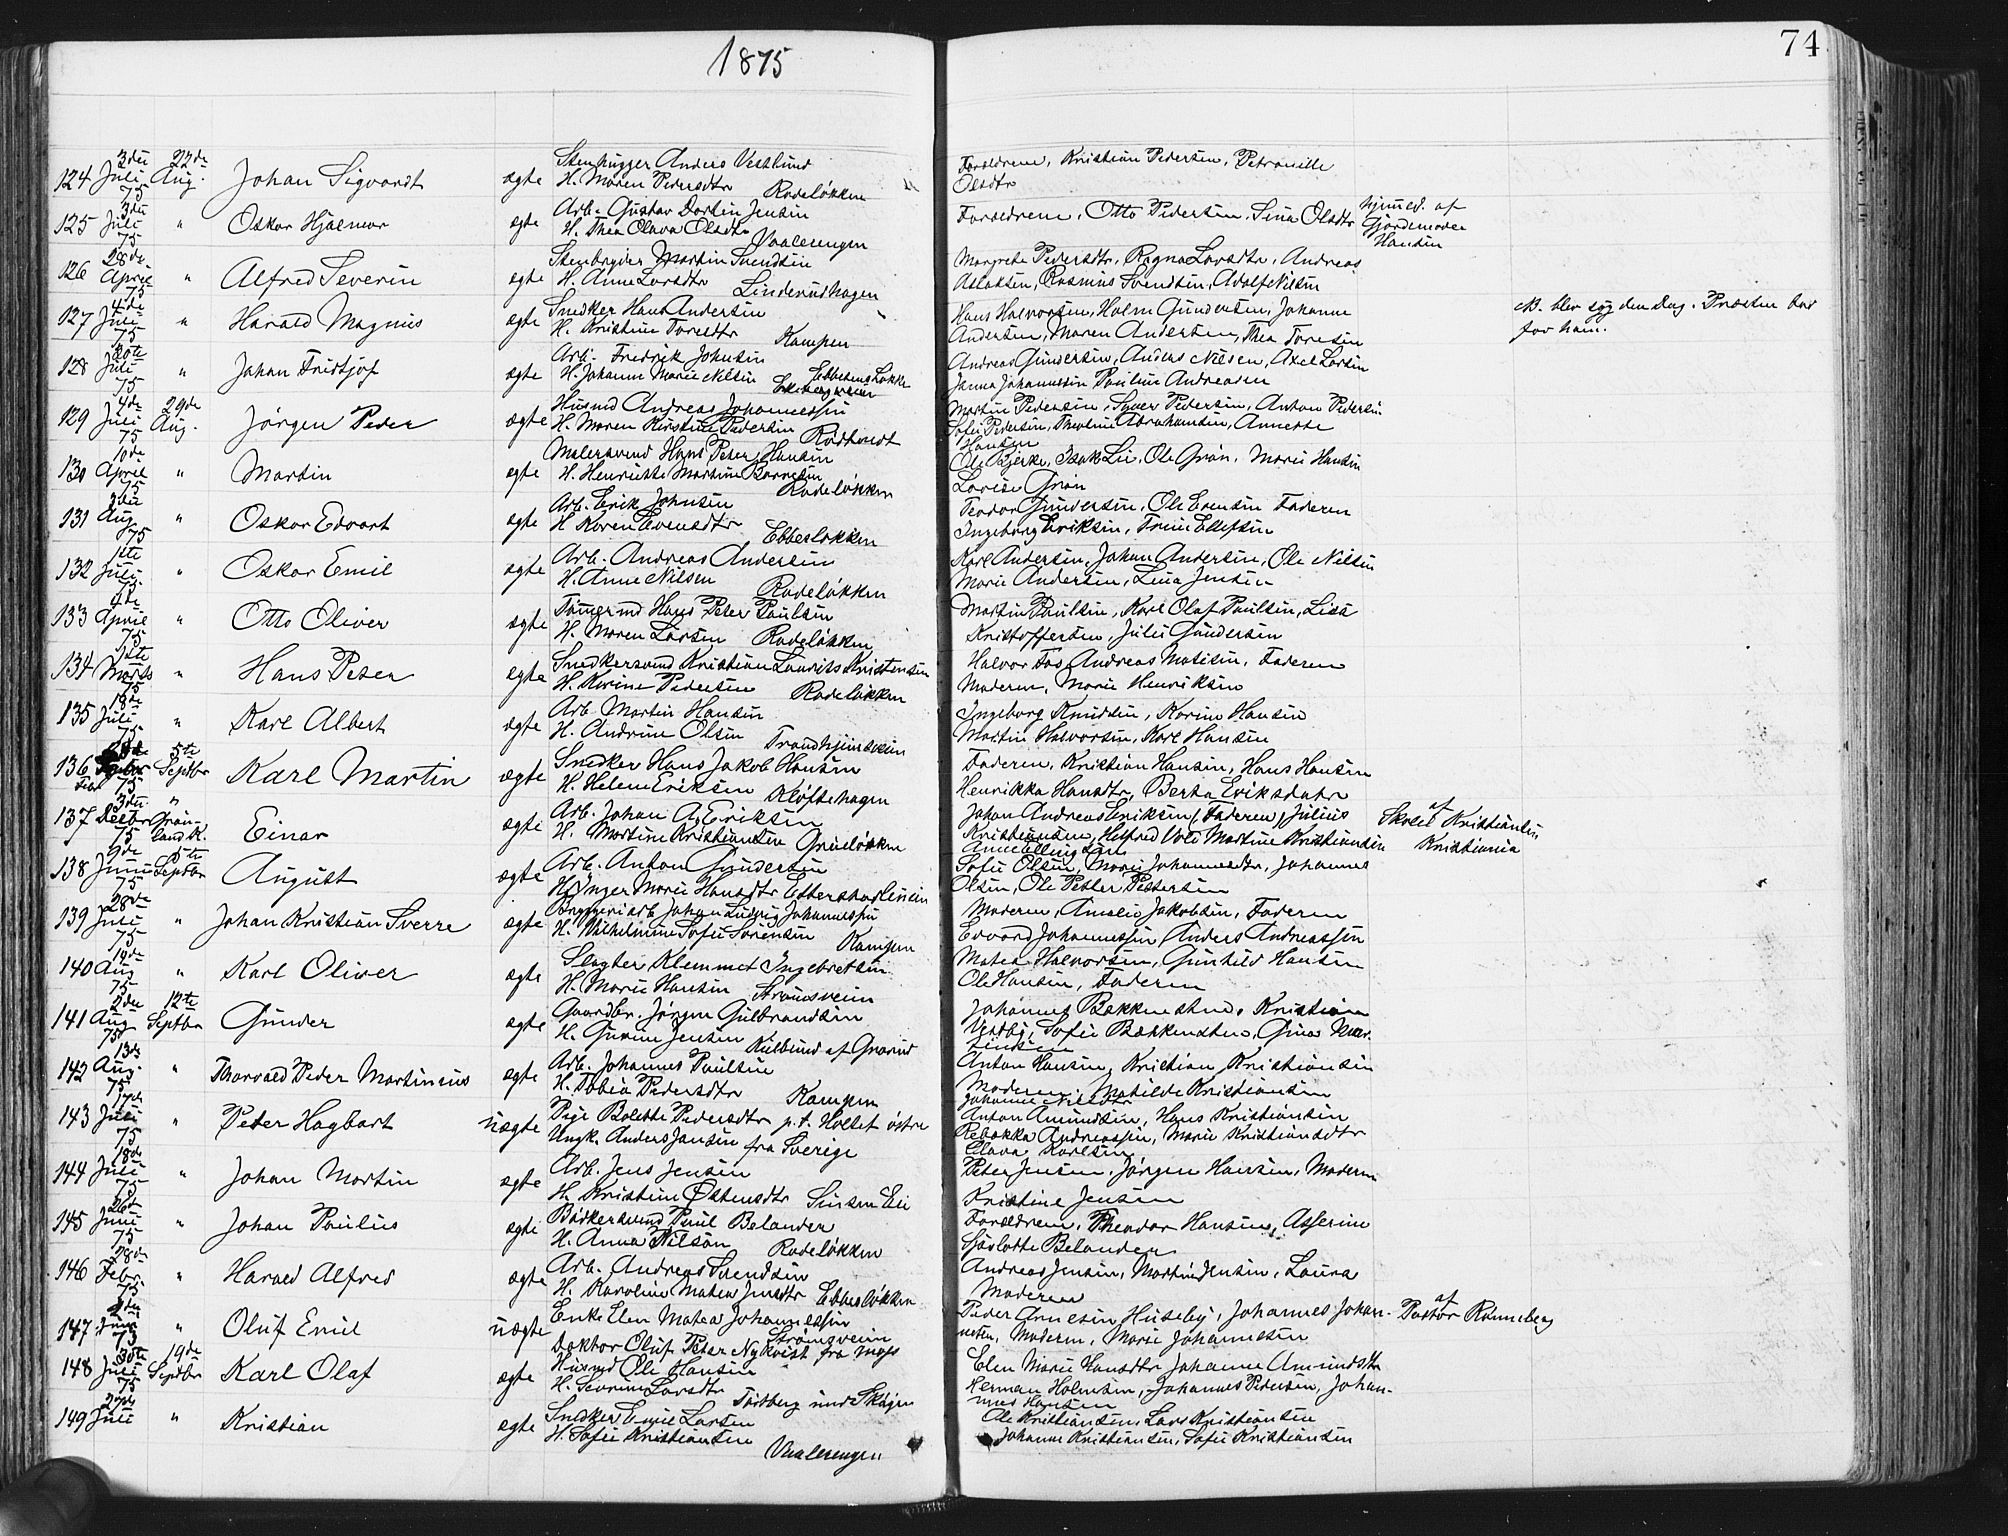 1875
74
124 3die Juli 75 22de Aug. Johan Sigvardt ægte Stenhugger Anders Vestlund
H. Maren Pedersdtr Rodeløkken
Forældrene, Kristian Pedersen, Petronille
Olsdtr
125 3die Juli 75 " Oskar Hjalmar ægte Arb. Gustav Jensen
H. Thea Olava Olsdtr Vaalerengen
Forældrene, Otto Pedersen, Lina Olsdtr hjemmed. af
Gjordemoder
Hansen
126 28de April 75 " Alfred Severin ægte Stenbryder Martin Svendsen
H. Anne Larsdtr Linderudhagen
Margrete Pedersdtr, Ragna Larsdtr, Andreas
Aslaksen, Rasmus Svendsen, Adolf Nilsen
127 4de Juli 75 " Harald Magnus ægte Snedker Hans Andersen
H. Kristine Toresdtr Kampen
Hans Halvorsen, Halvor Gundersen, Johanne
Andersen, Maren Andersen, Thea Toresen
B. blev syg den Dag. Præsten bar
for ham.
128 30te Juli 75 " Johan Fridtjof ægte Arb. Fredrik Johnsen
H. Johanne Marie Nilsen Ebbesens Løkke
Andreas Gundersen, Anders Nilsen, Axel Larsen
Janna Johannessen Pauline Andreasen
129 4de Juli 75 29de Aug. Jørgen Peder ægte Husmd Andreas Johannessen
H. Maren Kirstine Pedersen Rødtvedt
Martin Pedersen, Syver Pedersen, Anton Pedersen
Sofie Pedersen, Theoline Abrahamsen, Annette
Hansen
130 10de April 75 " Martin ægte Malersvend Hans Peter Hansen
H. Henriette Martine Rodeløkken
Ole Bjerke, Isak Lie, Ole Grøn, Marie Hansen
Lovise Grøn
131 3die Aug 75 " Oskar Edvart ægte Arb. Erik Johnsen
H. Karen Evensdtr Ebbesløkken
Teodor Gundersen, Ole Evensen Faderen
Ingeborg Eriksen, Trine Ellefsen
132 1ste Juli 75 " Oskar Emil ægte Arb. Andreas Andersen
H. Anne Nilsen Rodeløkken
Karl Andersen, Johan Andersen, Ole Nilsen
Marie Andersen, Lina Jensen
133 4de April 75 " Otto Oliver ægte Tømermd Hans Peter Paulsen
H. Maren Larsen Rodeløkken
Martin Paulsen, Karl Olaf Paulsen, Lisa
Kristoffersen, Julie Gundersen
134 1ste Marts 75 " Hans Peter ægte Snedkersvend Kristian Laurits Kristensen
H. Karine Pedersen Rodeløkken
Halvor Fos Andreas Matisen, Faderen
Moderen, Marie Henriksen
135 18de Juli 75 " Karl Albert ægte Arb. Martin Hansen
H. Andrine Olsen Trondhjemsveien
Ingeborg Knudsen, Karine Hansen
Martin Halvorsen, Karl Hansen
136 75 5te Septbr Karl Martin ægte Snedker Hans Jakob Hansen
H. Helene Eriksen Kløftehagen
Faderen, Kristian Hansen, Hans Hansen
Henrikka Hansdtr, Berta Eriksdatr
137 3die Decbr 75 " Grøn-
land K. Einar ægte Arb. Johan A. Eriksen
H. Martine Kristiansen Grueløkken
Johan Andreas Eriksen (Faderen) Julius
Kristiansen, Helfred Vold Martine Kristiansen
Anne Ellingsen
af
Kristiania
138 9de Juni 75 5te Septbr August ægte Arb. Anton Gundersen
H. Inger Marie Hansdtr Etterstadlinien
Sofie Olsen, Marie Johannesdtr, Johannes
Olsen, Ole Petter Pettersen
139 28de Juli 75 " Johan Kristian Sverre ægte Bryggeriarb. Johan Ludvig Johannessen
H. Vilhelmine Sofie Sørensen Kampen
Moderen, Amalie Jakobsen, Faderen
Edvard Johannessen Anders Andreassen
140 19de Aug 75 " Karl Oliver ægte Slagter Klemmet Ingebretsen
H. Marie Hansen Strømsveien
Matea Halvorsen, Gunhild Hansen
Ole Hansen, Faderen
141 2den Aug 75 12te Septbr Gunder ægte Gaardbr. Jørgen Gulbrandsen
H. Gurine Jensen Kulbund af Grorud
Johannes Bækkensten, Kristian
Vestby, Sofie Bækkensten, Gina Mar-
tinsen
142 13de Aug. 75 " Thorvald Peder Martinius ægte Arb. Johannes Paulsen
H. Tobia Pedersdtr Kampen
Anton Hansen, Kristian Kristiansen
Moderen, Matilde Kristiansen
143 17de Juli 75 " Peter Hagbart uægte Pige Bolette Pedersdtr p.t. Holtet østre
Ungk. Anders Jansen fra Sverige
Johanne Nilsdtr
Anton Amundsen, Hans Kristiansen
Rebekka Andreassen, Marie Kristiansdtr
Olava Karlsen
144 18de Juli 75 " Johan Martin ægte Arb. Jens Jensen
H. Kristine Østensdtr
Peter Jensen, Jørgen Hansen, Moderen
Kristine Jensen
145 26de Juni 75 " Johan Paulus ægte Bødkersvend Paul Belander
H. Anna Nilsøn Rodeløkken
Forældrene, Theodor Hansen, Asserine
Sjarlotte Belander
146 28de Febr. 75 " Harald Alfred ægte Arb. Andreas Svendsen
H. Karoline Matea Jensdtr Ebbesløkken
Andreas Jensen, Martin Jensen, Laura
Moderen
147 2den Juni 75 " Oluf Emil uægte Enke Elen Matea Johannessen
Strømsveien
Doktor Oluf Peter Nykvist fra Moss
Peder Arnesen Huseby, Johannes Johan-
nesen, Moderen, Marie Johannesen
af
Pastor Rønneberg
148 30te Juli 75 19de Septbr Karl Olaf ægte Husmd Ole Hansen
H. Severine Larsdtr
Elen Marie Hansdtr Johanne Amundsdtr
Herman Holmsen, Johannes Pedersen, Johan-
nes Hansen
149 27de Juli " Kristian ægte Snedker Emil Larsen
H. Sofie Kristiansen Vaalerengen
Ole Kristiansen, Lars Kristiansen
Johanne Kristiansen, Sofie Kristiansen